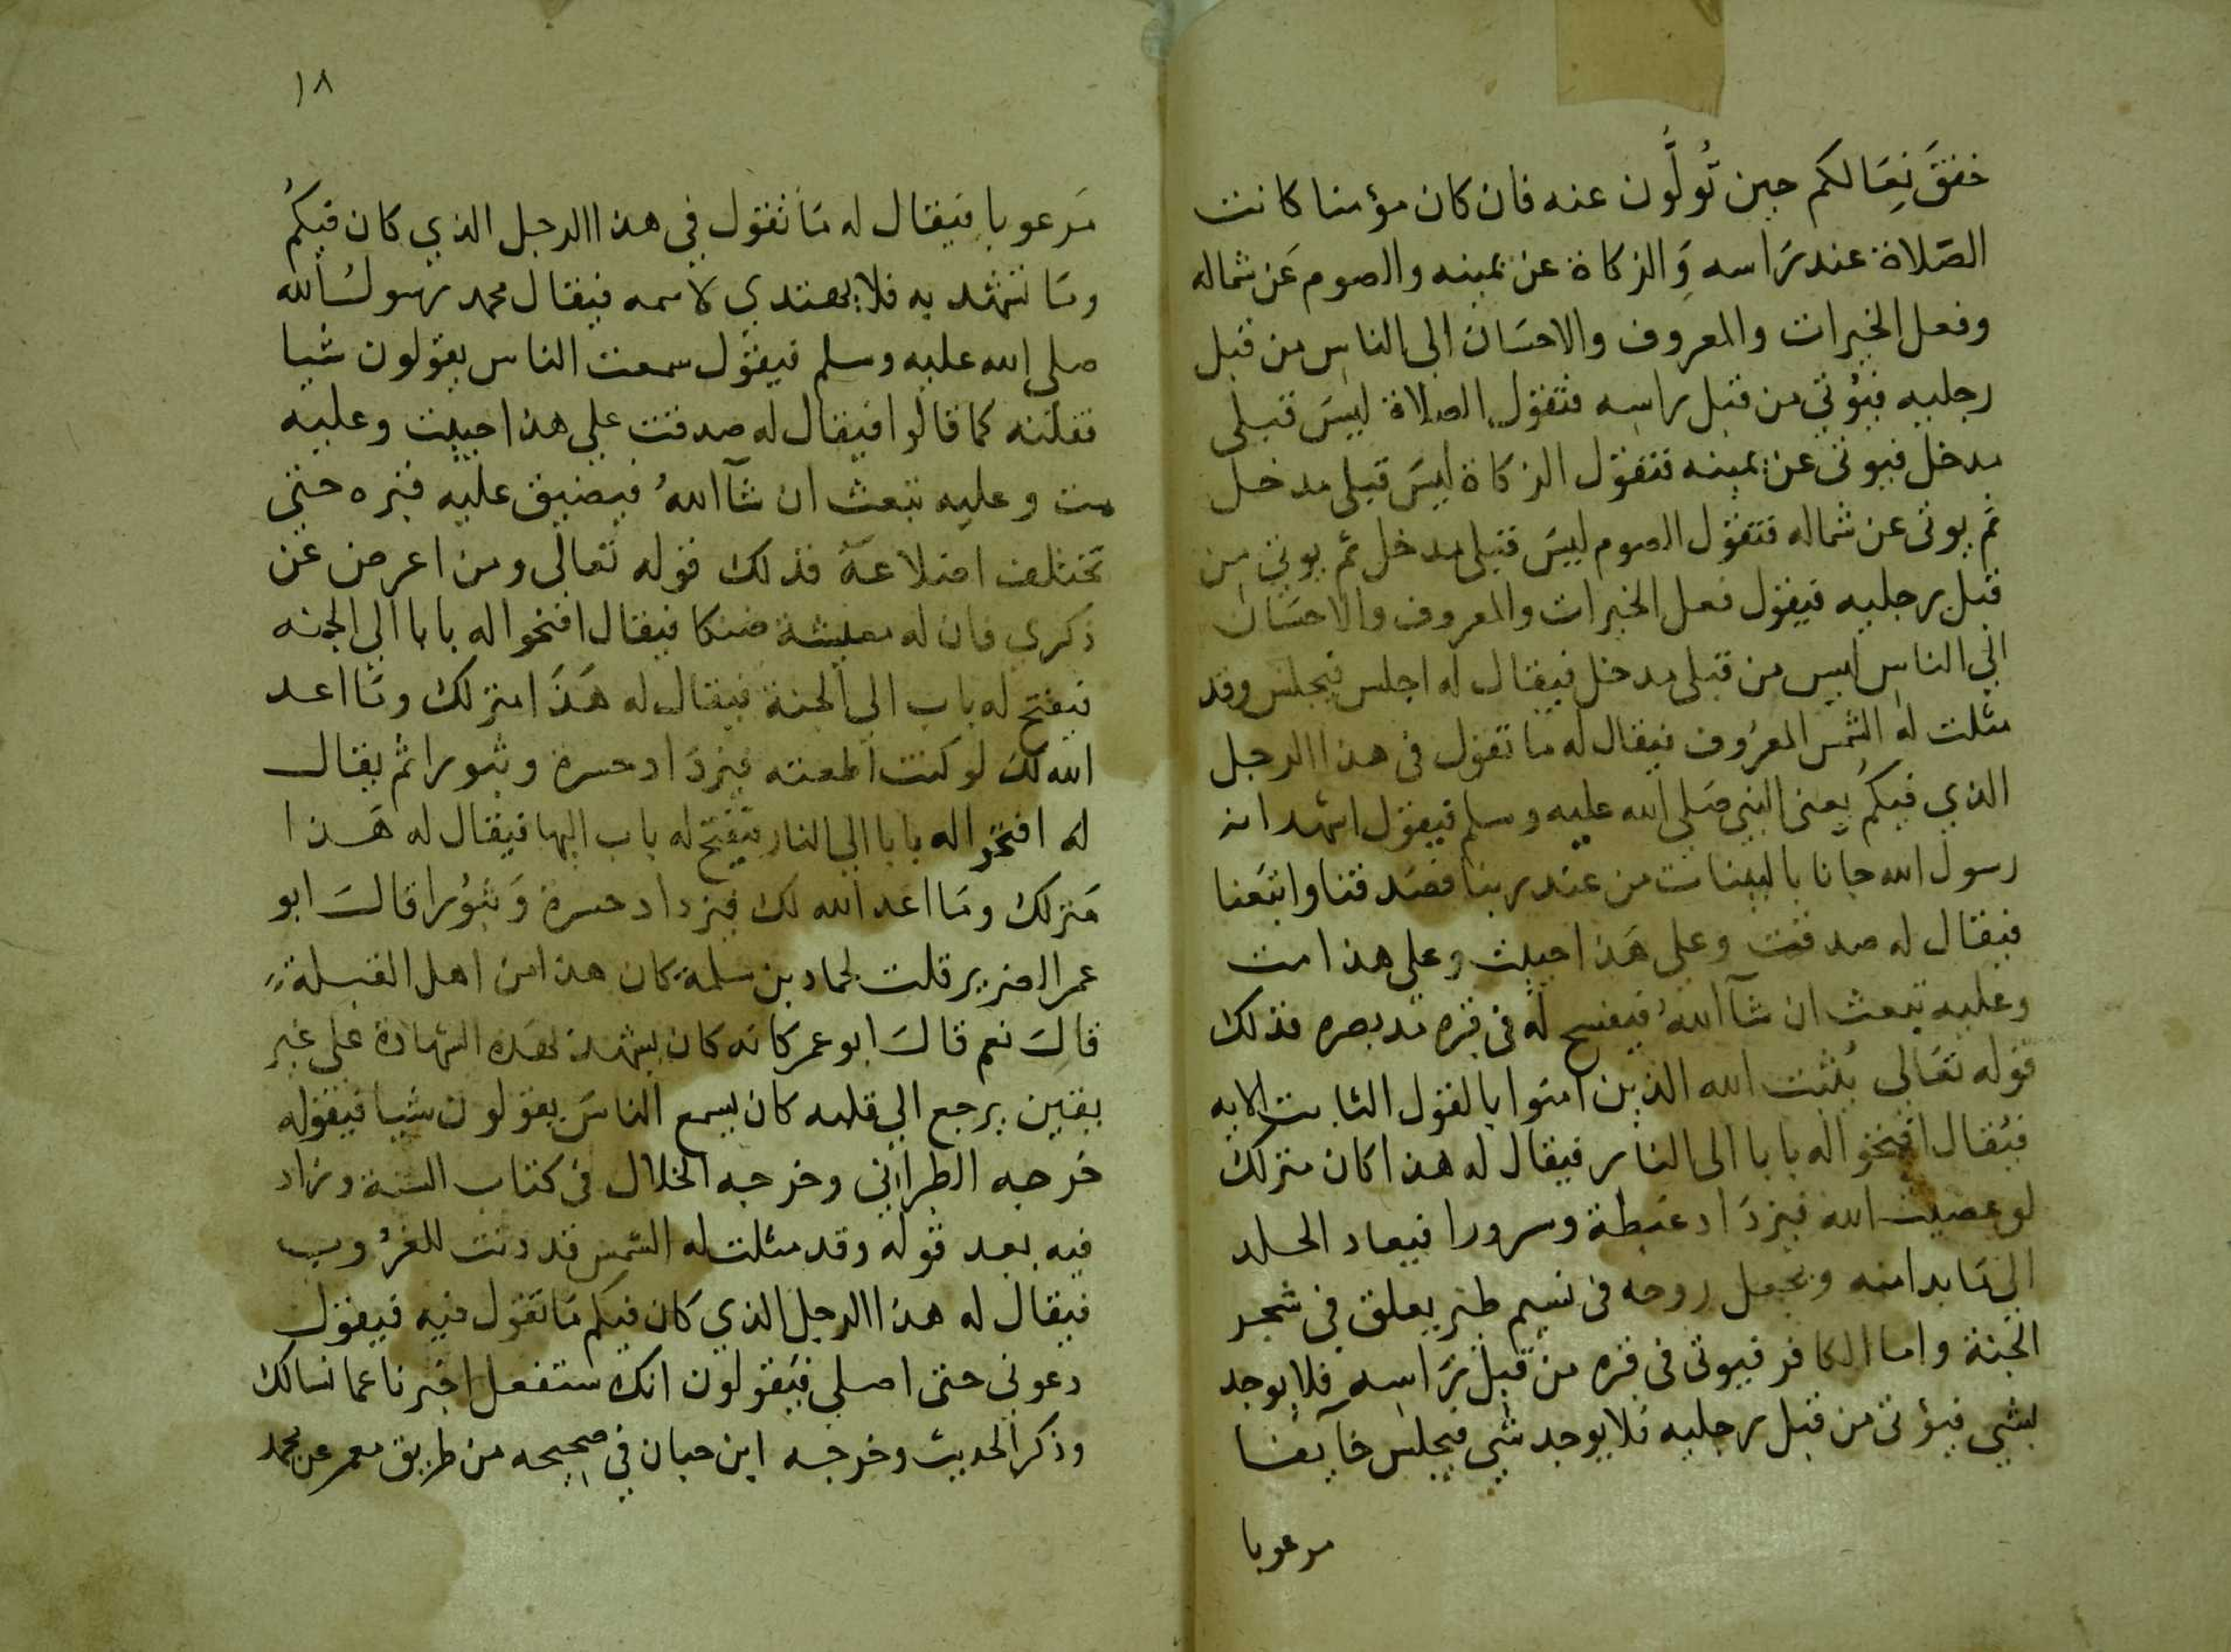 خفقَ نِعَالكم حين تُولُّون عنه فان كان مؤمنا كانت
الصَلاة عند رَاسه وَالزكاة عن يمينه والصوم عَن شماله
وفعل الخيرات والمعروف والاحسَان الى الناس من قبل
رجليه فيُؤتي من قبل راسه فتقول الصلاة ليسَ قبلى
مدخل فيوتى عن يمينه فتقول الزكاة ليسَ قبلى مدخل
ثم يوتى عن شماله فتقول الصوم ليسَ قبلى مدخل ثم يوتي من
قبل رجليه فيقول فعل الخيرات والمعروف والاحسَان
الي الناس ليس من قبلى مدخل فيقال له اجلس فيجلس وقد
مثلت له الشمس المعرُوف فيقال له ما تقول فى هذا الرجل
الذي فيكم يعنى النبي صَلى الله عليه وسلم فيقول اشهد انه
رسول الله جانا بالبينات من عند ربنا فصَدقنا واتبَعنا
فيقال له صدقت وعلى هَذا حييت وعلى هذا مت
وعليه تبعث ان شآ اللهُ فيفسح له فى قبره مد بصره فذلك
قوله تعَالى يُثبت الله الذين امنوا بالقول الثابت الايه
فيُقال افتحوا له بابا الى النار فيقال له هذا كان منزلك
لو عصيت الله فيزدَاد غبطة وسرورا فيعاد الجلد
الي مَا بدا منه ويجعل روحه فى نسيم طير يعلق في شجر
الجنة واما الكافر فيوتى فى قبره من قبل رَاسه فلا يوجد
بشي فيؤتى من قبل رجليه فلا يوجد شي فيجلس خآيفا
مرعوبا
١٨
مَرعوبا فيقال له مَا تقول في هذا الرجل الذي كان فيكُم
ومَا تشهد به فلا يهتدي لاسمه فيقال محمد رسولُ الله
صلى الله عليه وسلم فيقول سمعت الناس يقولون شيا
فقلته كما قالوا فيقال له صدقت على هذا حييت وعليه
مت وعليه تبعث ان شآ اللهُ فيضيق عليه قبره حتى
تختلف اضلاعه فذلك قوله تعالى ومن اعرض عن
ذكري فان له معيشة ضنكا فيقال افتحوا له بابا الى الجنه
فيفتح له باب الى الجنة فيقال له هَذا منزلك ومَا اعد
الله لك لو كنت اطعته فيزدَاد حسرة وثبورا ثم يقال
له افتحوا له بابا الى النار فيفتح له باب اليها فيقال له هَذا
مَنزلك ومَا اعد الله لك فيزداد حسرة وَثبوُرا قالَ ابو
عمر الضرير قلت لحماد بن سلمة كان هذا من اهل القبلة
قالَ نعم قالَ ابو عمر كانه كان يشهد لهَذه الشهادة على غير
يقين يرجع الي قلبه كان يسمع الناسَ يقولون شيا فيقوله
خرجه الطبرانى وخرجه الخلال فى كتاب السنة وزاد
فيه بعد قوله وقد مثلت له الشمس قد دنت للغرُوب
فيقال له هذا الرجل الذي كَان فيكم مَا تقول فيه فيقول
دعونى حتى اصلي فيَقولون انك ستفعل اخبرنا عما نسالك
وذكر الحديث وخرجه ابن حبان فى صحيحه من طريق معمر عن محمد